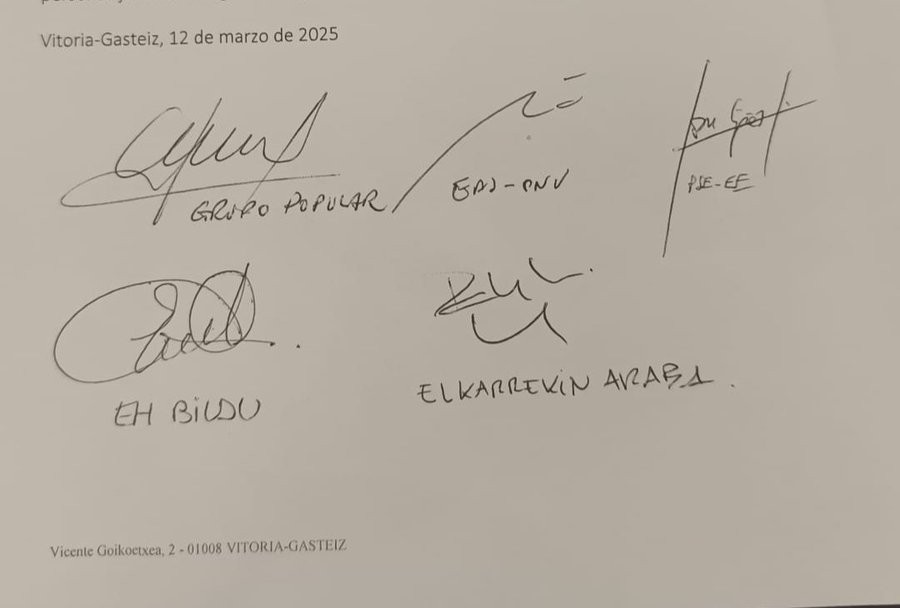 Vitoria-Gasteiz, 12 de marzo de 2025
GRUPO POPULAR
EAJ-PNV
PSE-EE
EH BILDU
ELKARREKIN ARABA.
Vicente Goikoetxea, 2 - 01008 VITORIA-GASTEIZ